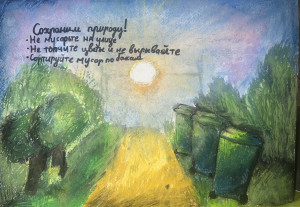 Сохраним природу!
• Не мусорите на улице
• Не топчите цветы и не вырывайте
• Сортируйте мусор по бакам